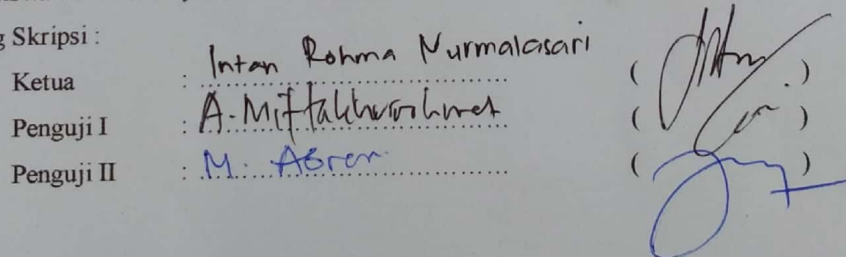 g Skripsi :
Ketua : Intan Rohma Nurmalasari ( )
Penguji I : A. Miftakhurrohmat ( )
Penguji II : M. Abror ( )